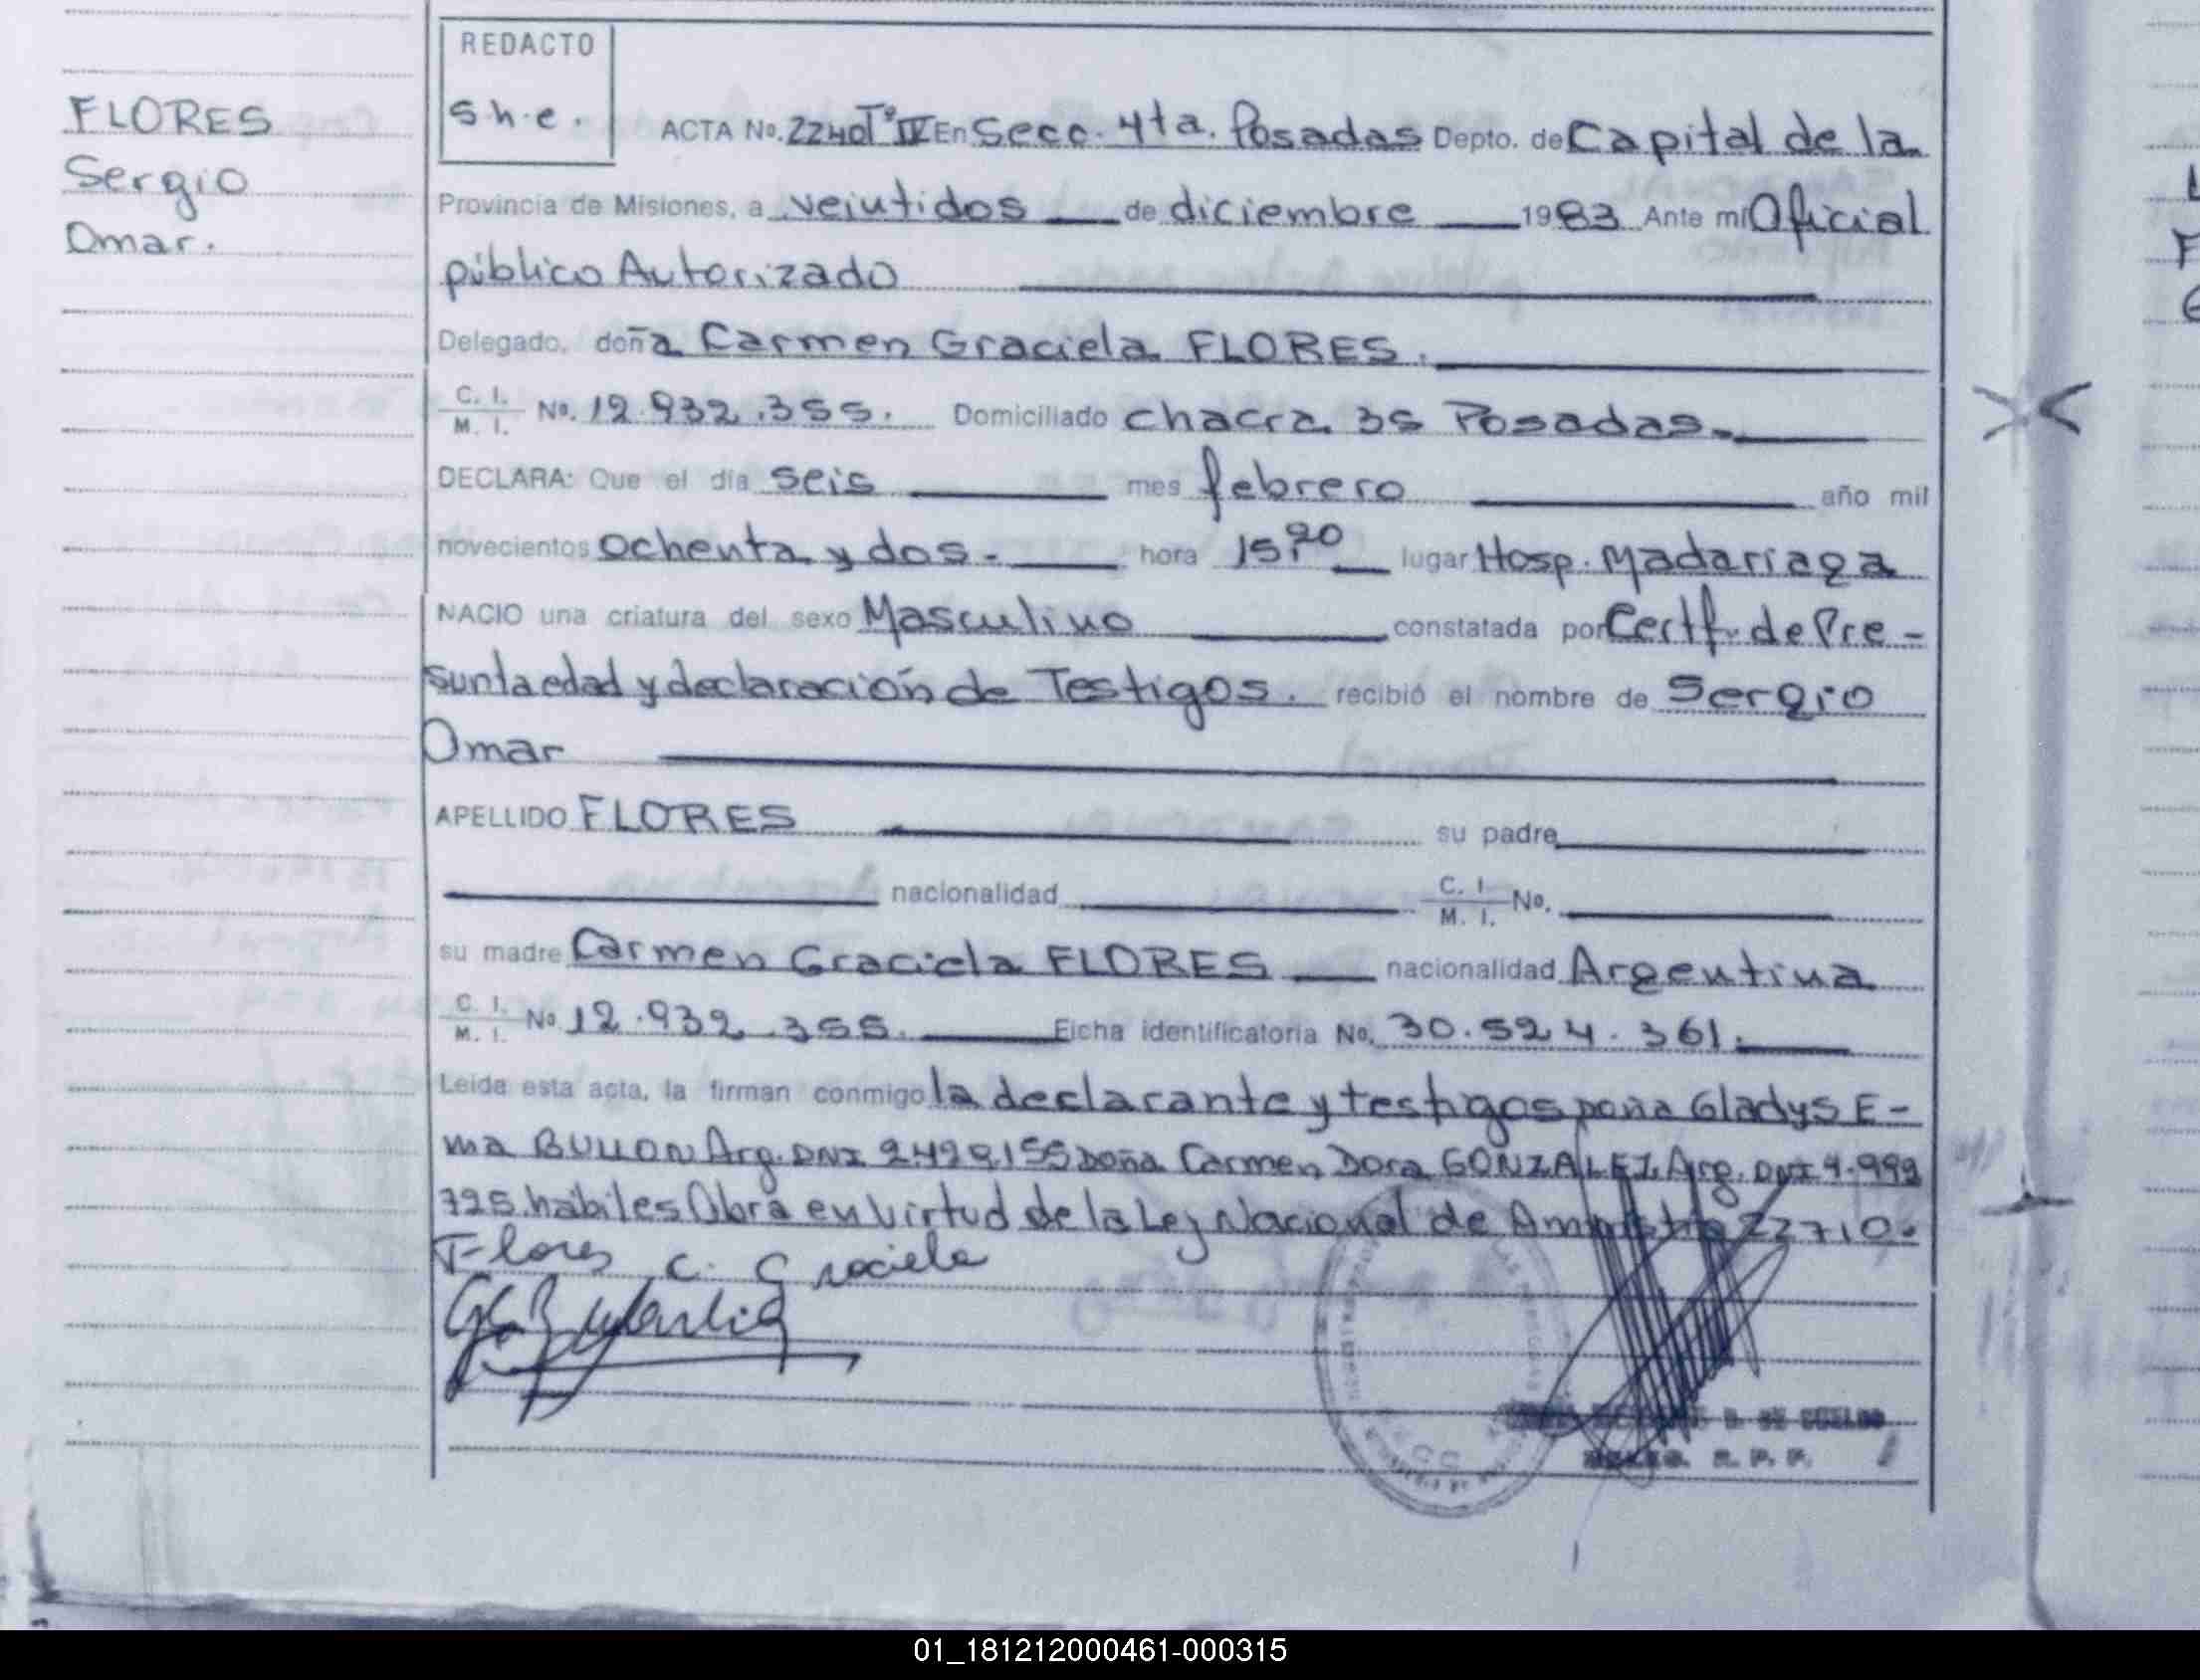 FLORES
Sergio
Omar.
REDACTO
s.h.e.
ACTA No. 2240 Tº IV En Secc. 4ta. Posadas Depto. de Capital de la
Provincia de Misiones, a veintidos de diciembre 1983 Ante mí Oficial
público Autorizado
Delegado, doña Carmen Graciela FLORES.
C. I. M. I. No. 12.932.355. Domiciliado chacra 35 Posadas.
DECLARA: Que el día seis mes febrero año mil
novecientos ochenta y dos. hora 15,20 lugar Hosp. Madariaga
NACIO una criatura del sexo Masculino constatada por Certf. de Pre-
sunta edad y declaración de Testigos. recibió el nombre de Sergio
Omar
APELLIDO FLORES su padre
nacionalidad C. I. M. I. No.
su madre Carmen Graciela FLORES nacionalidad Argentina
C. I. M. I. No 12.932.355. Ficha identificatoria No. 30.524.361.
Leida esta acta, la firman conmigo la declarante y testigos Doña Gladys E-
ma Arg. DNI 2.429.155 Doña Carmen Dora GONZALEZ Arg. DNI 4.999
725 habiles Obra en virtud de la Ley Nacional de Amnistia 22710.
Flores C. Graciela
01_181212000461-000315